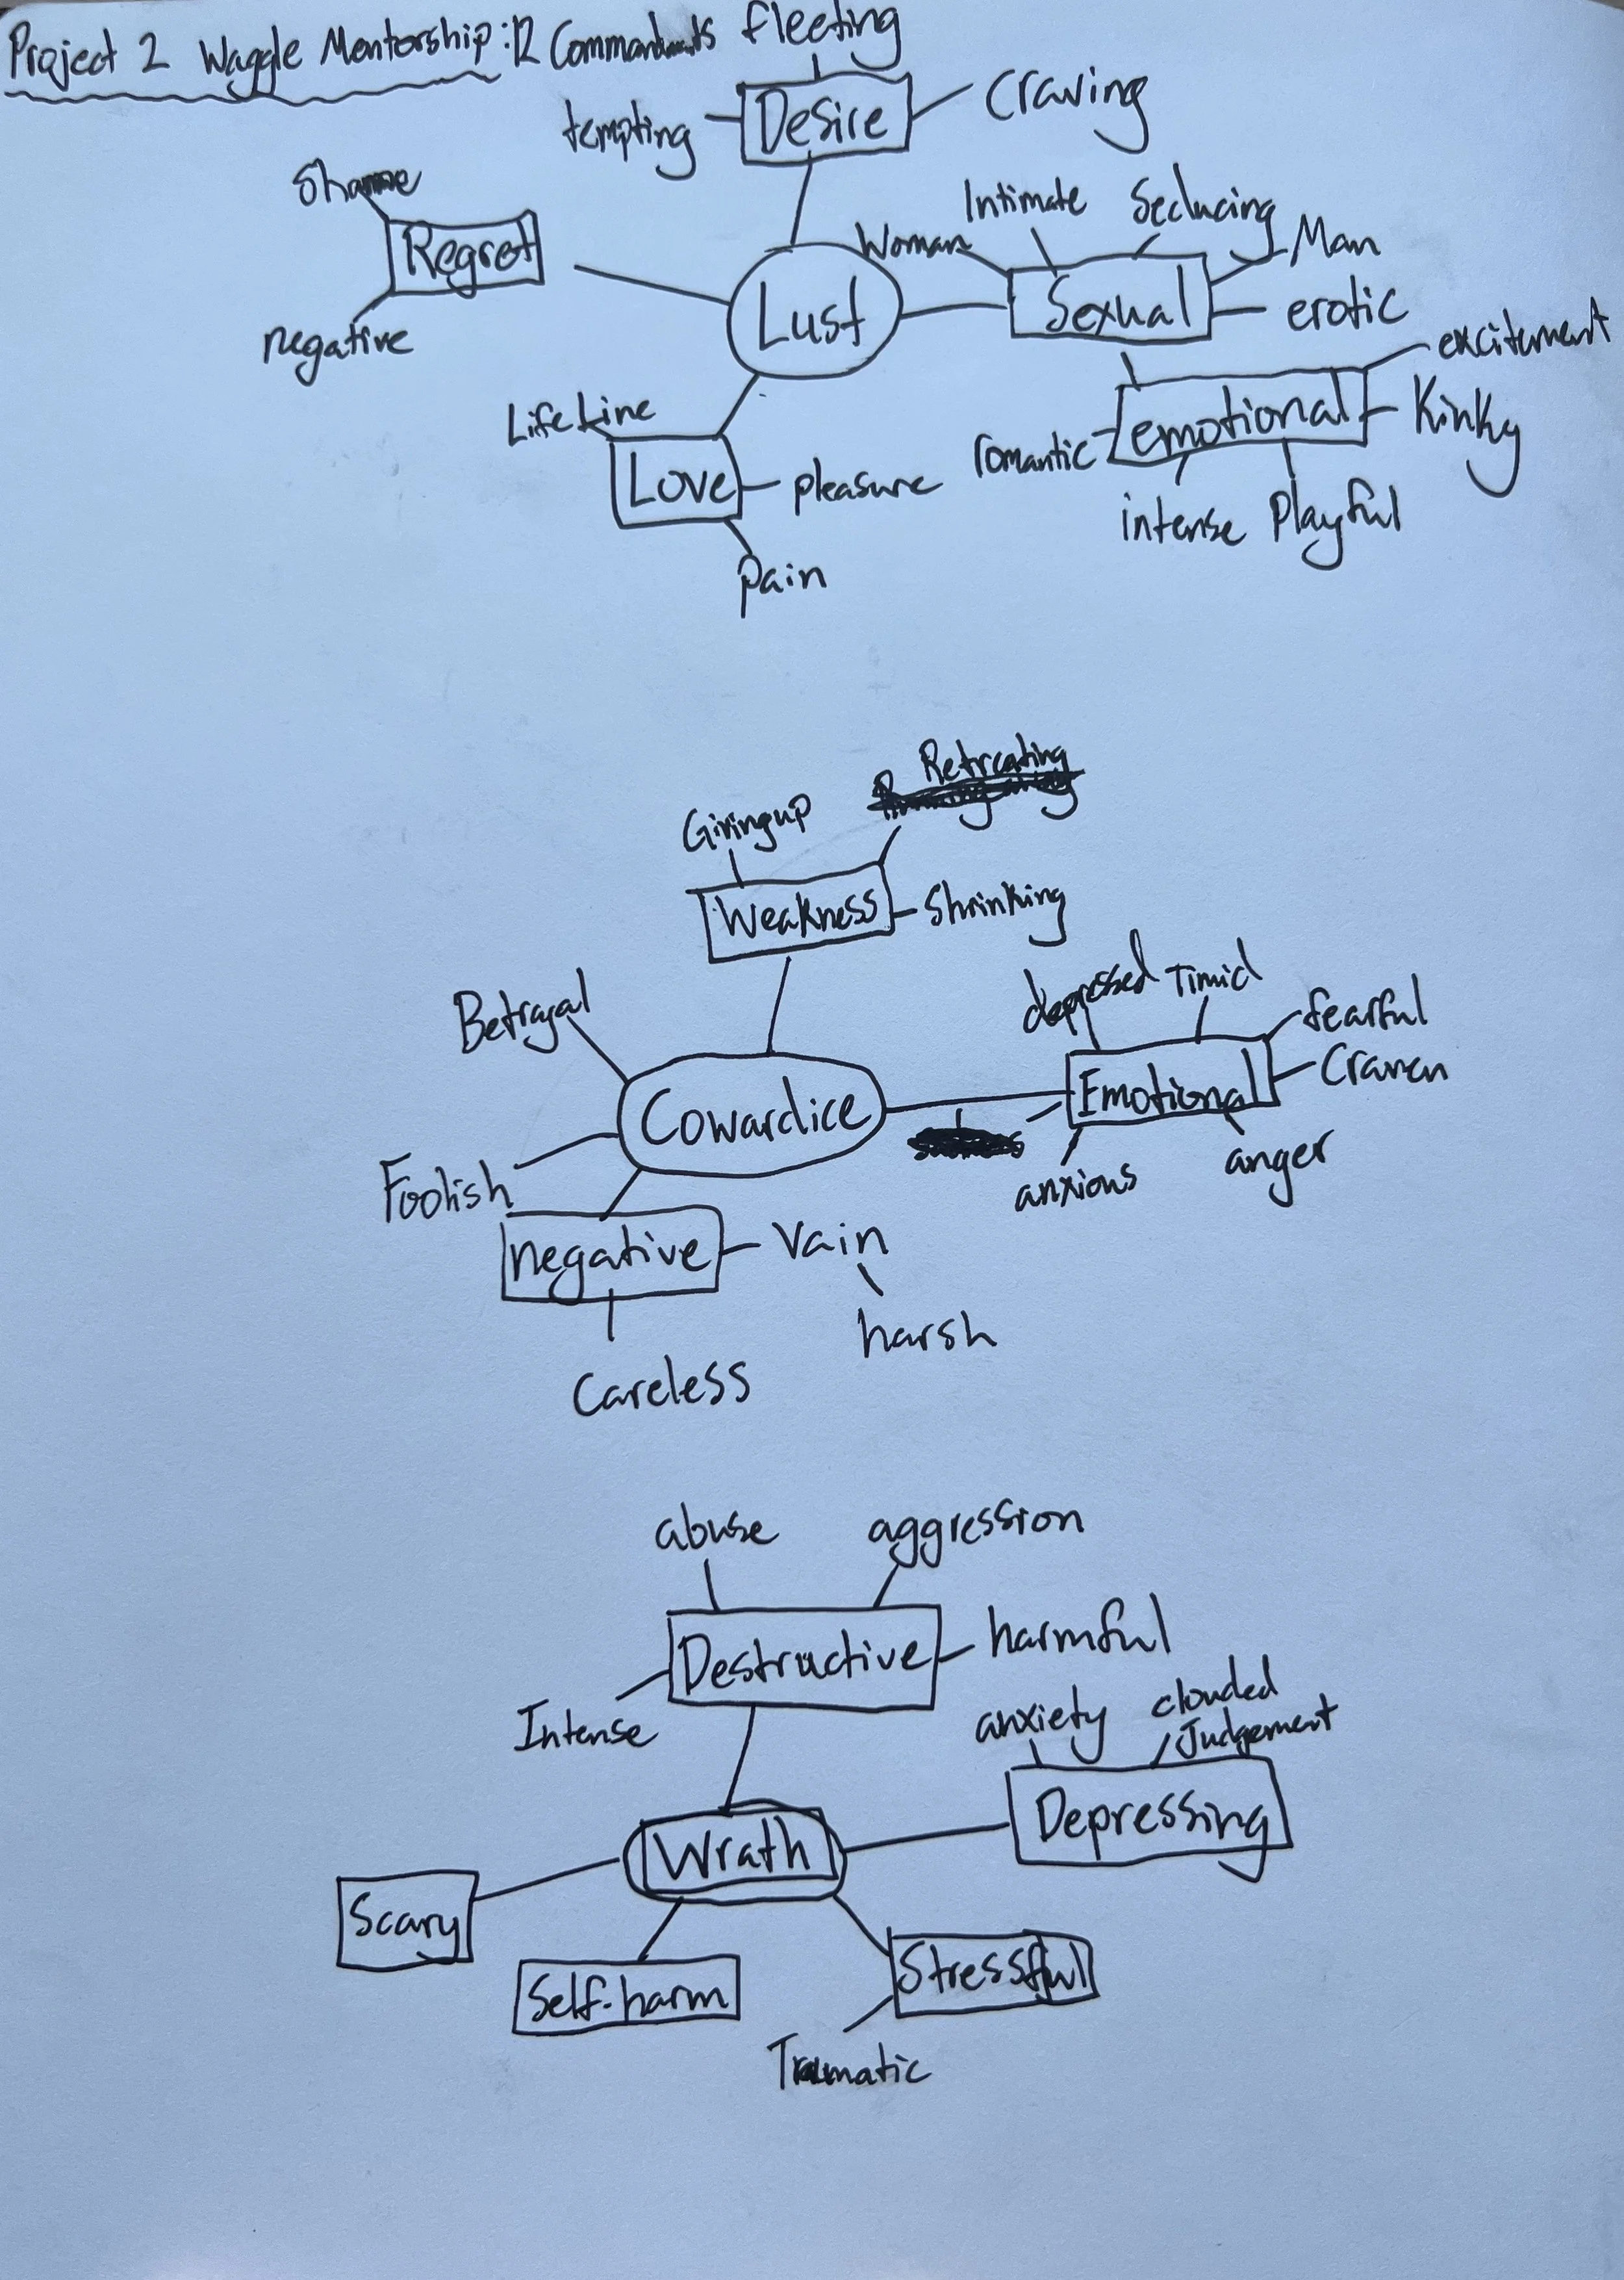 Project 2 Waggle Mentorship: 12 Commandments
fleeting
tempting
Desire
Craving
Shame
Regret
negative
Lust
Woman
Intimate
Seducing
Man
Sexual
erotic
excitement
emotional
Kinky
romantic
intense
Playful
LifeLine
Love
pleasure
Pain
Retreating
Giving up
Weakness
Shrinking
Betrayal
depressed
Timid
fearful
Craven
Emotional
Cowardice
anxious
anger
Foolish
negative
Vain
harsh
Careless
abuse
aggression
Destructive
harmful
Intense
anxiety
clouded
Judgement
Depressing
Wrath
Scary
Self-harm
Stressful
Traumatic